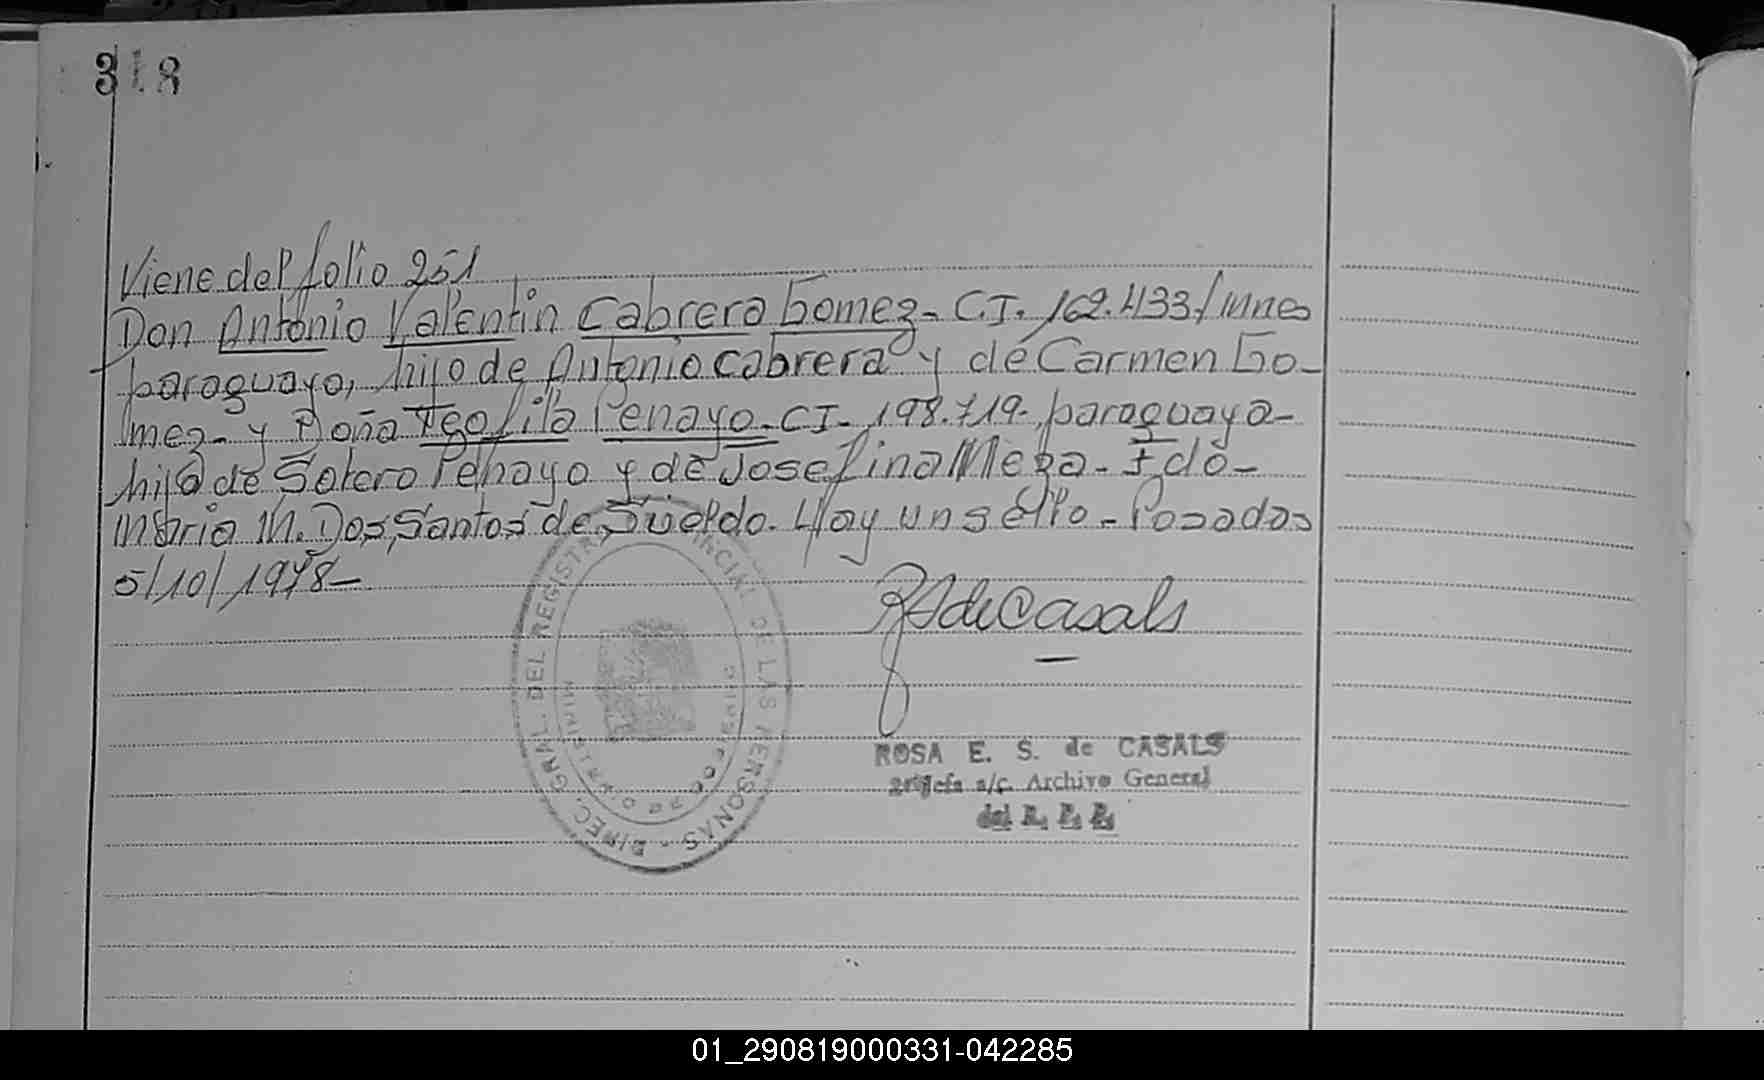 318
Viene del folio 251
Don Antonio Valentin Cabrera Gomez - C.I. 162.433/Mnes
paraguayo, hijo de Antonio Cabrera y de Carmen Go-
mez - y Doña Teofila Penayo - CI - 198.719 - paraguaya -
hija de Sotero Penayo y de Josefina Meza - Fdo -
Maria M. Dos Santos de Sueldo. Hay un sello - Posadas
5/10/1978 -
RSdeCasals
DIREC. GRAL. DEL REGISTRO PROVINCIAL DE LAS PERSONAS
ROSA E. S. de CASALS
Jefa a/c. Archivo General
del R. P. P.
01_290819000331-042285